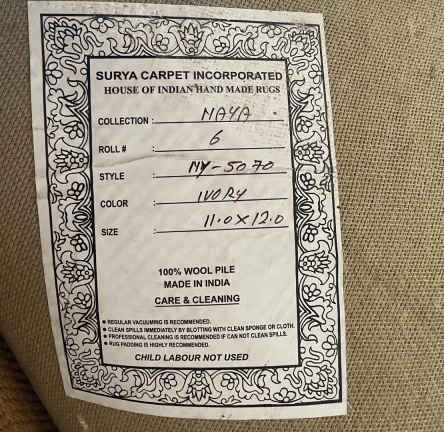 SURYA CARPET INCORPORATED
HOUSE OF INDIAN HAND MADE RUGS
COLLECTION : NAYA
ROLL # : 6
STYLE : NY-5070
COLOR : IVORY
SIZE : 11.0X12.0
100% WOOL PILE
MADE IN INDIA
CARE & CLEANING
● REGULAR VACUUMING IS RECOMMENDED.
● CLEAN SPILLS IMMEDIATELY BY BLOTTING WITH CLEAN SPONGE OR CLOTH.
● PROFESSIONAL CLEANING IS RECOMMENDED IF CAN NOT CLEAN SPILLS.
● RUG PADDING IS HIGHLY RECOMMENDED.
CHILD LABOUR NOT USED